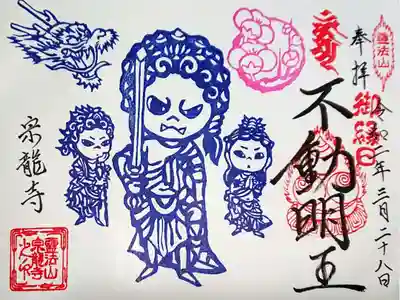 靈法山
奉拝
令和二年三月二十八日
御縁日
不動明王
泉龍寺